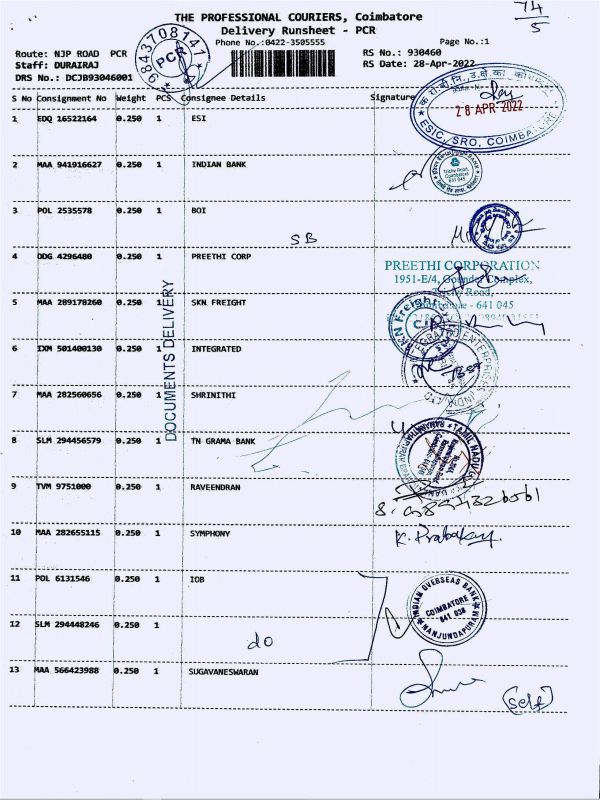 74
5
THE PROFESSIONAL COURIERS, Coimbatore
Delivery Runsheet - PCR
Phone No.:0422-3505555
Page No.:1
Route: NJP ROAD PCR
RS No.: 930460
Staff: DURAIRAJ
RS Date: 28-Apr-2022
DRS No.: DCJB93046001
9843708141
PCR
S No Consignment No Weight PCS Consignee Details Signature
1 EDQ 16522164 0.250 1 ESI
28 APR 2022
ESIC, SRO, COIMBATORE
2 MAA 941916627 0.250 1 INDIAN BANK
Trichy Road,
Coimbatore
641 045
3 POL 2535578 0.250 1 BOI
SB
4 ODG 4296480 0.250 1 PREETHI CORP
PREETHI CORPORATION
1951-E/4, Gounder Complex,
Trichy Road,
Coimbatore - 641 045
5 MAA 289178260 0.250 1 SKN FREIGHT
SKN Freight
DOCUMENTS DELIVERY
6 IXM 501400130 0.250 1 INTEGRATED
7 MAA 282560656 0.250 1 SHRINITHI
8 SLM 294456579 0.250 1 TN GRAMA BANK
TAMIL NADU
9 TVM 9751000 0.250 1 RAVEENDRAN
10 MAA 282655115 0.250 1 SYMPHONY
K. Prabakar
11 POL 6131546 0.250 1 IOB
INDIAN OVERSEAS BANK
COIMBATORE
641 036
NANJUNDAPURAM
12 SLM 294448246 0.250 1
do
13 MAA 566423988 0.250 1 SUGAVANESWARAN
(self)